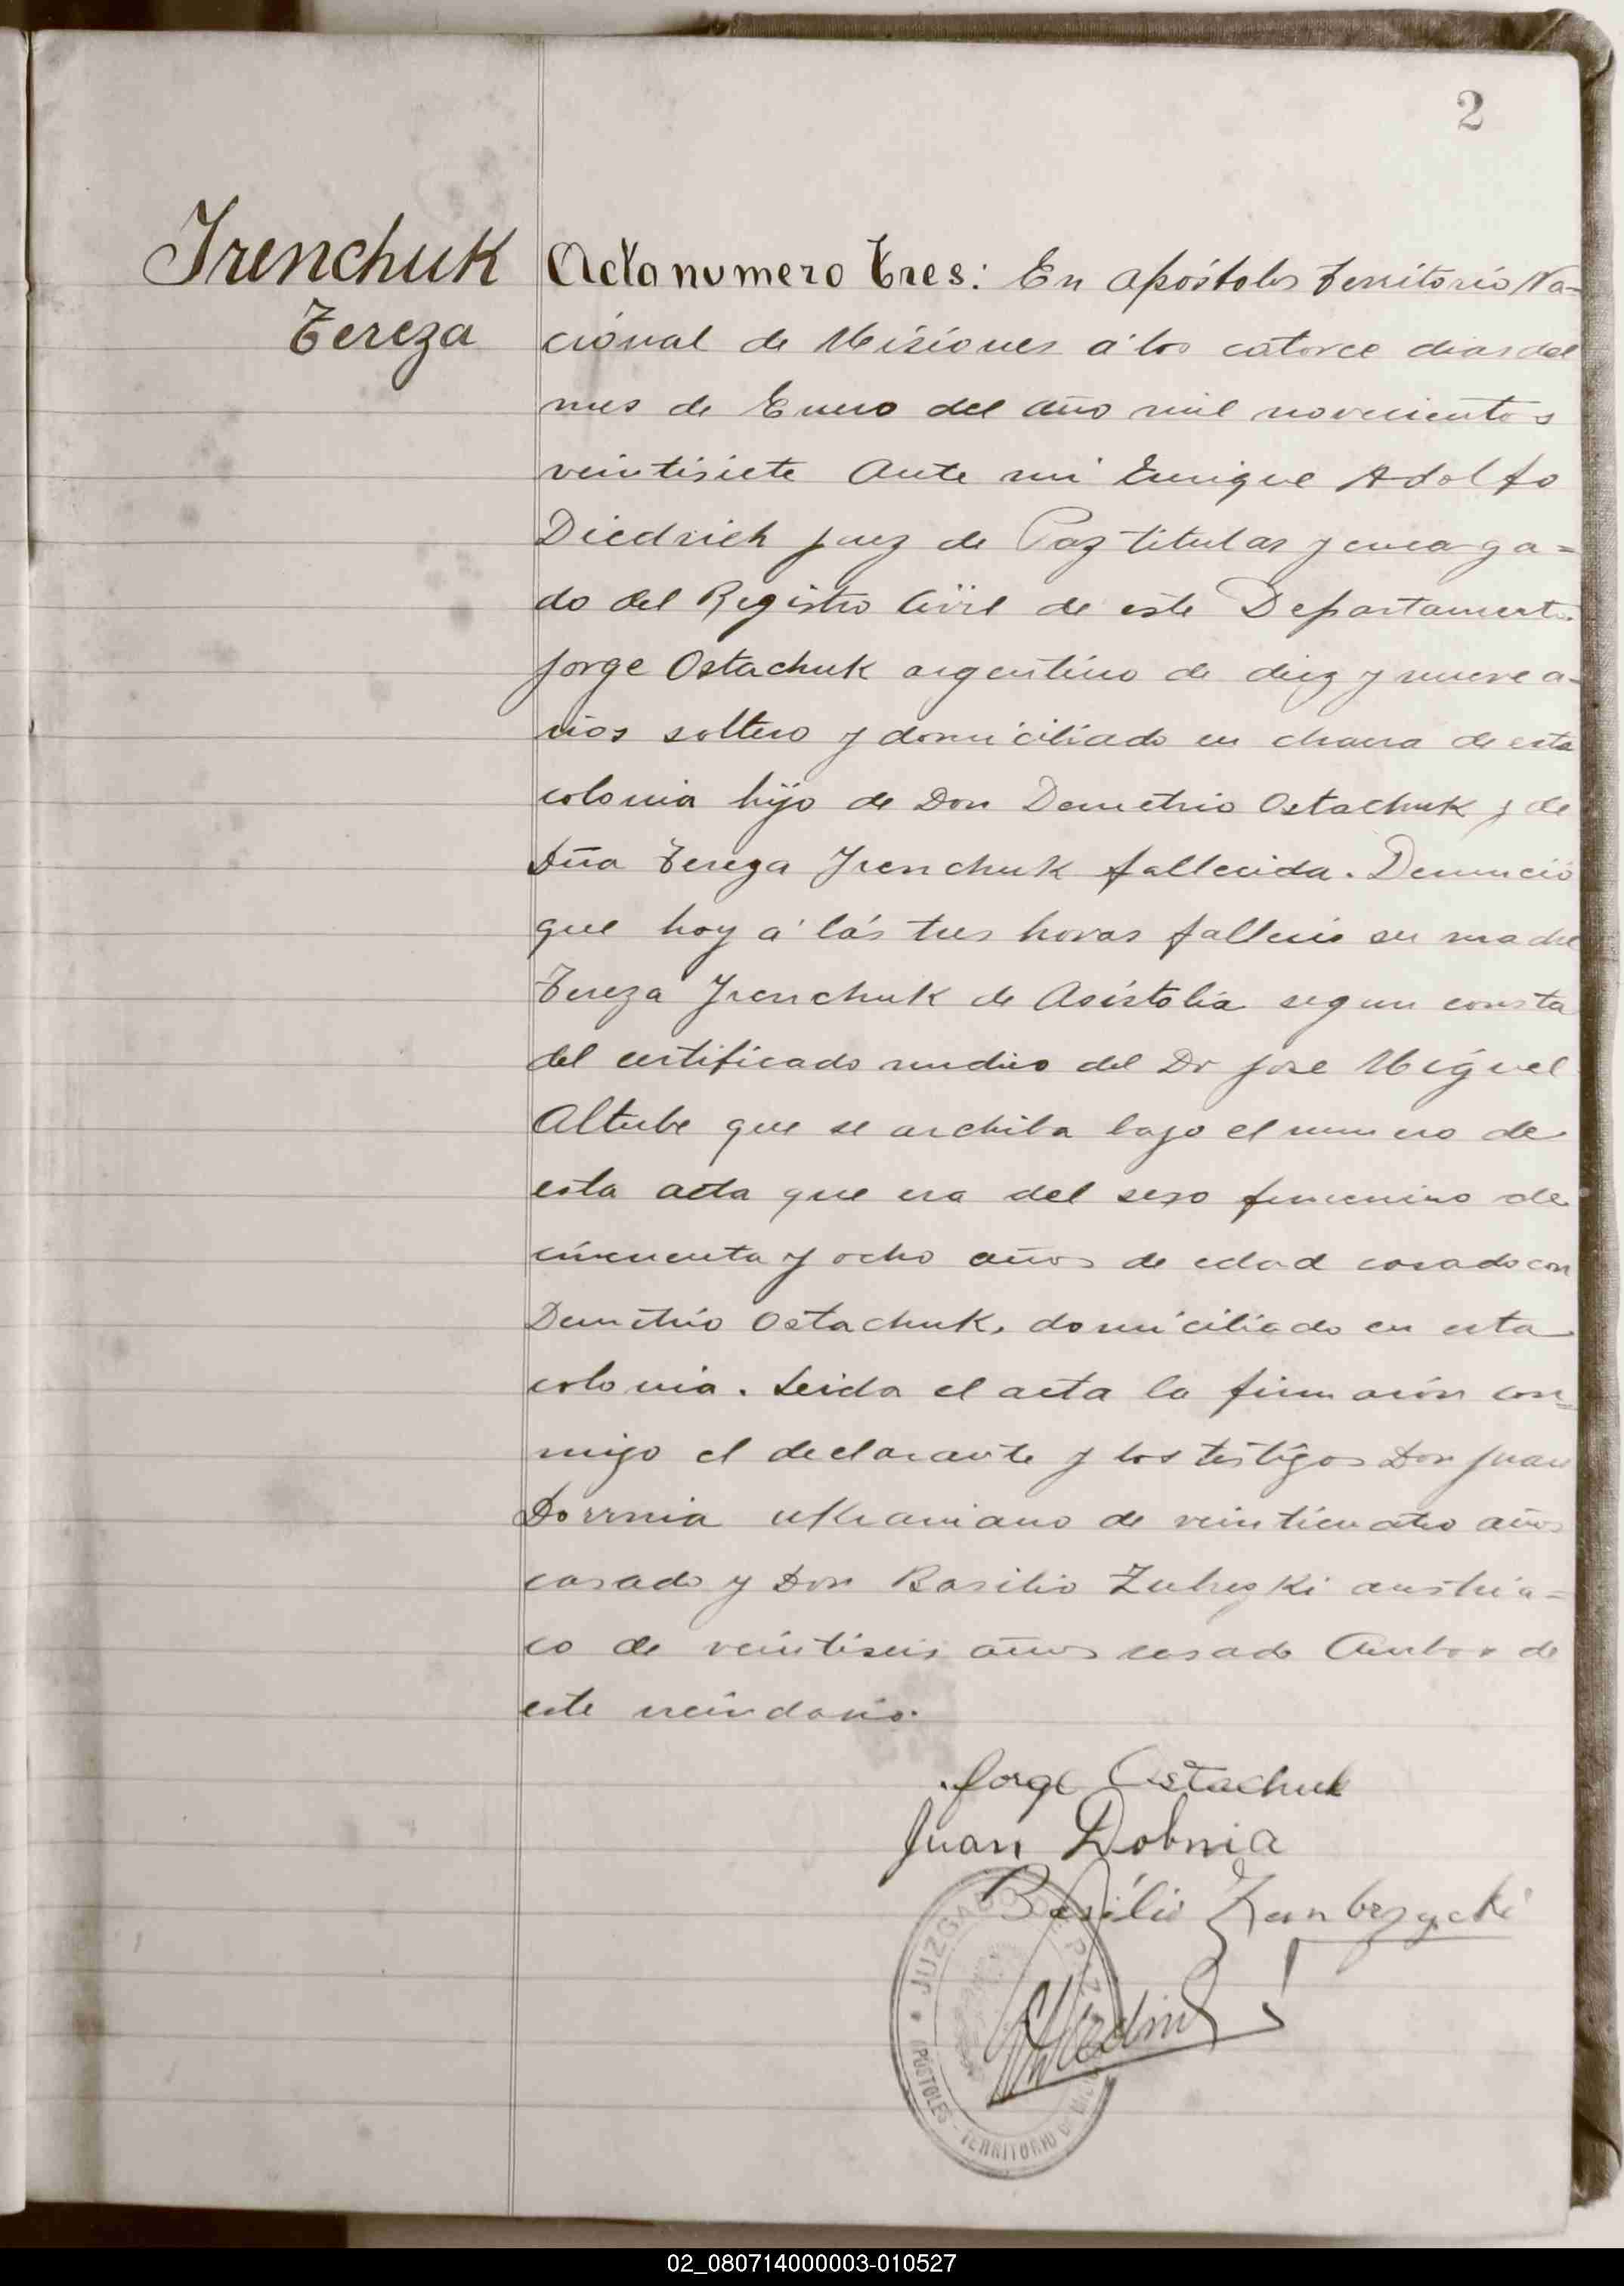 2
Irenchuk
Tereza
Acta numero tres: En apóstoles territorio Na-
cional de Misiones á los catorce dias del
mes de Enero del año mil novecientos
veintisiete Ante mi Enrique Adolfo
Diedrich juez de Paz titular y encarga=
do del Registro Civil de este Departamento.
Jorge Ostachuk argentino de diez y nueve a-
ños soltero y domiciliado en chacra de esta
colonia hijo de Don Demetrio Ostachuk y de
Dña Tereza Irenchuk fallecida. Denunció
que hoy á lás tres horas fallecio su madre
Tereza Irenchuk de Asistolia segun consta
del certificado medico del Dr Jose Miguel
Altube que se archiba bajo el numero de
esta acta que era del sexo femenino de
cincuenta y ocho años de edad casado con
Demetrio Ostachuk, domiciliado en esta
colonia. Leida el acta la firmarón con=
migo el declarante y los testigos Don Juan
Dorrnia ukraniano de veinticuatro años
casado y Don Basilio Zubrzki austria=
co de veintiseis años casado Ambos de
este vecindario.
Jorge Ostachuk
Juan Dobnia
Basilio Zambrzycki
JUZGADO DE PAZ
APÓSTOLES - TERRITORIO DE MISIONES
02_080714000003-010527